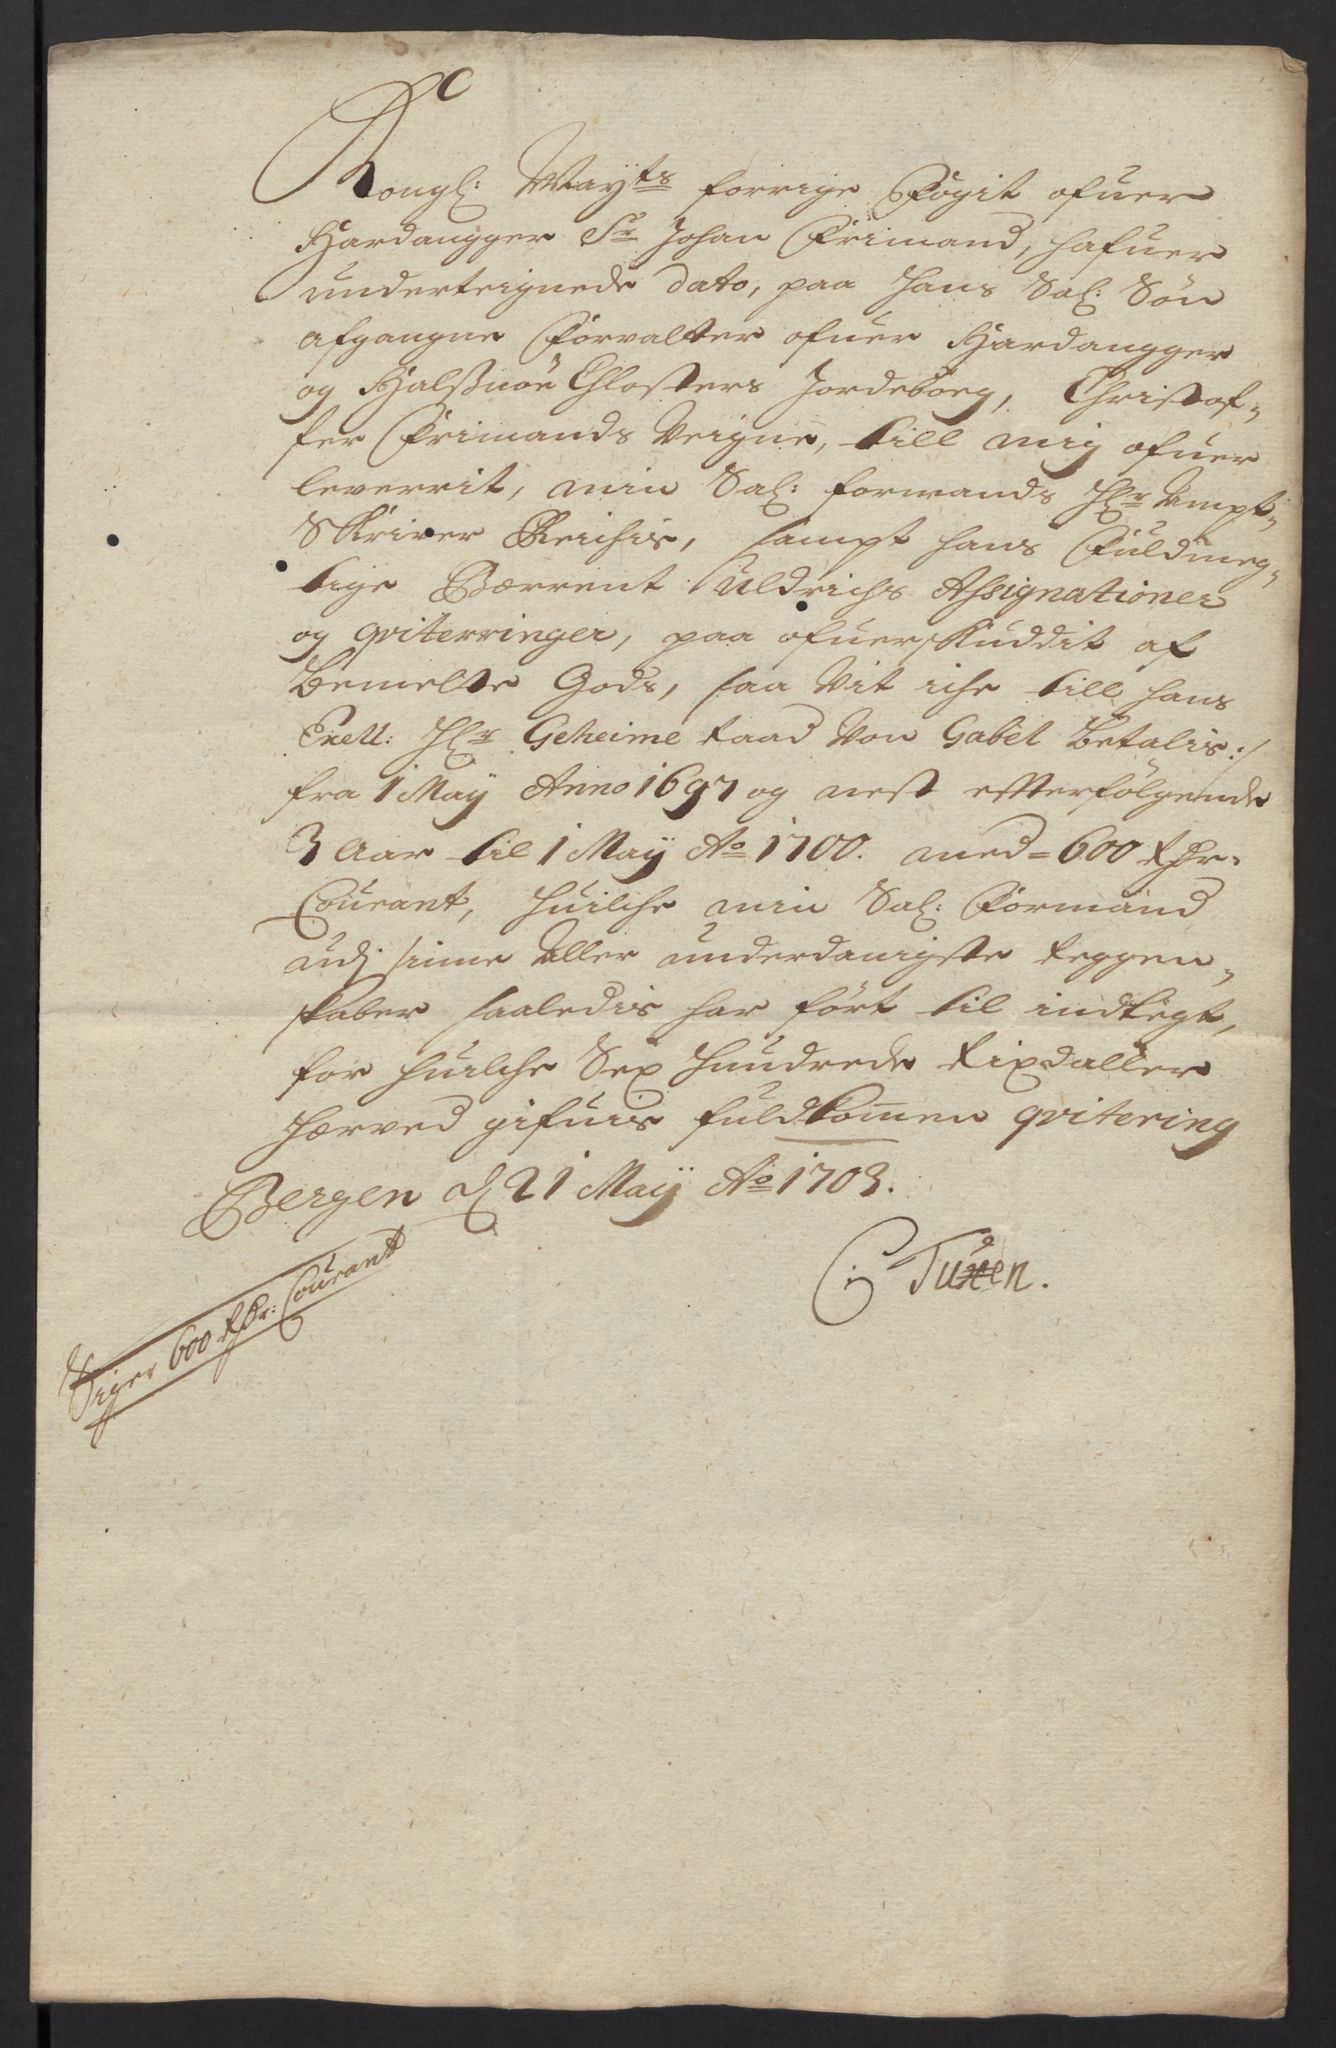 Kongl: Mayts forrige Fogit ofuer
Hardangger Sr Johan Frimand, hafuer
underteignede dato, paa hans Sal: Søn
afgangne Forvalter ofuer Hardangger
og Halssnøe Closters Jordebog, Christof-
fer Frimands Veigne, till mig ofuer
leverrit, min Sal: formands Hr Ampt-
Skriver Reichis, sampt hans Fuldmeg-
tige Bærrent Uldrichs Assignationer
og qviterringer, paa ofuerskuddit af
bemelte Gods, saa vit iche till hans
Excell: Hr Geheime raad Von Gabel betalis :/
fra 1 Maÿ Anno 1697 og nest efterfølgende
3 Aar til 1 Maÿ Ao 1700. med = 600 Rdr
Courant, huilche min Sal: Formand
udj sinne Aller underdanigste Reggen-
skaber saaledis har ført til indtegt,
for huilche Sex Hundrede Rixdaller
herved gifuis fuldkomen qvitering
Bergen d 21 Maÿ Ao 1703.
C Tuxen.
Siger 600 Rdr: Courant